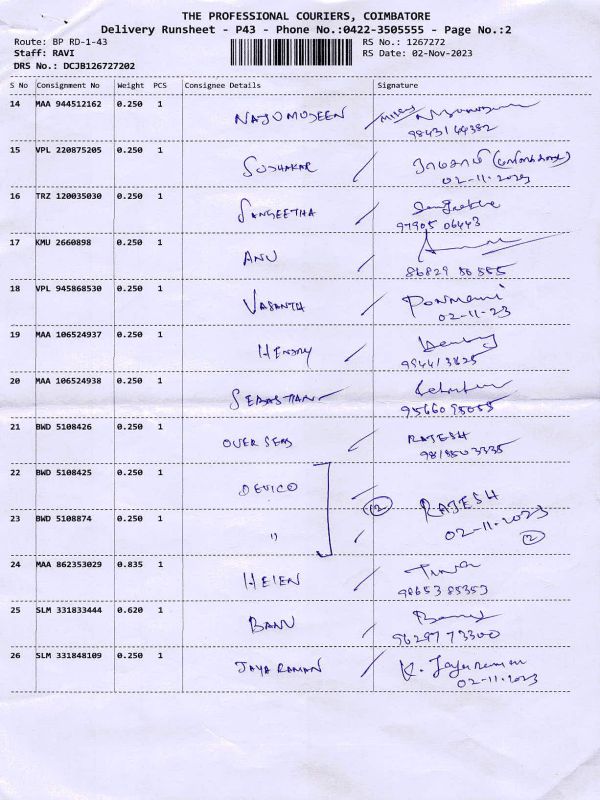 THE PROFESSIONAL COURIERS, COIMBATORE
Delivery Runsheet - P43 - Phone No.:0422-3505555 - Page No.:2
Route: BP RD-1-43 RS No.: 1267272
Staff: RAVI RS Date: 02-Nov-2023
DRS No.: DCJB126727202
S No Consignment No Weight PCS Consignee Details Signature
14 MAA 944512162 0.250 1 NAJOMUDEEN
98431 44382
15 VPL 220875205 0.250 1 SUDHAKAR
02-11-2023
16 TRZ 120035030 0.250 1 SANGEETHA Sangeetha
97905 06443
17 KMU 2660898 0.250 1 ANU
18 VPL 945868530 0.250 1 VASANTH Ponmani
02-11-23
19 MAA 106524937 0.250 1 HENDRY
20 MAA 106524938 0.250 1 SEBASTIAN
95660 95055
21 BWD 5108426 0.250 1 OVERSEAS RAJESH
22 BWD 5108425 0.250 1 DEVICO
RAJESH
23 BWD 5108874 0.250 1 " 02-11-2023
24 MAA 862353029 0.835 1 HELEN
98653 85353
25 SLM 331833444 0.620 1 BANU
96297 73300
26 SLM 331848109 0.250 1 JAYARAMAN K. Jayaraman
02-11-2023